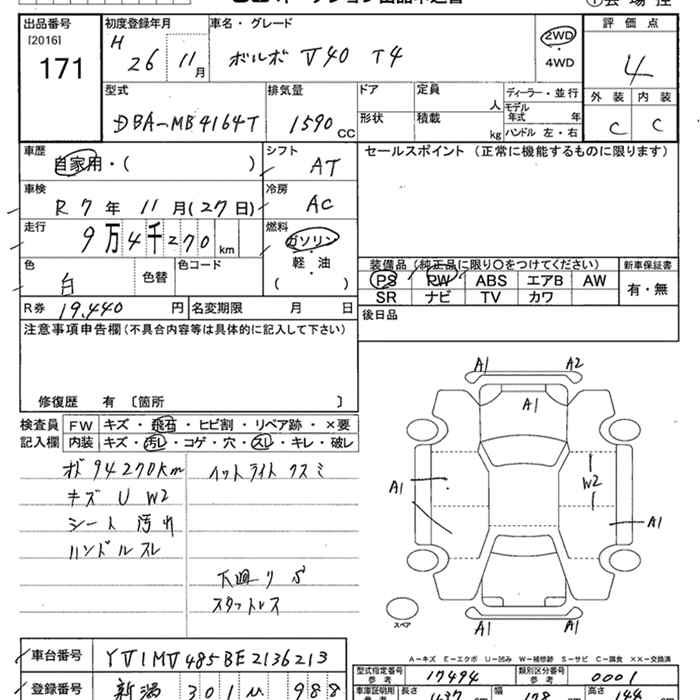 出品番号
[2016]
171
初度登録年月
H 26 11月
車名・グレード
ボルボ V40 T4
2WD
・
4WD
評価点
4
外装 内装
C C
型式
DBA-MB4164T
排気量
1590 CC
ドア
形状
定員
人
積載
kg
ディーラー・並行
モデル年式 年
ハンドル 左・右
車歴
自家用・( )
シフト
AT
セールスポイント (正常に機能するものに限ります)
車検
R 7 年 11 月 (27 日)
冷房
AC
走行
9万4千270 km
燃料
ガソリン
・
軽・油
( )
色
白
色替
色コード
装備品 (純正品に限り○をつけてください)
PS PW ABS エアB AW
SR ナビ TV カワ
新車保証書
有・無
R券 19,440 円
名変期限 月 日
後日品
注意事項申告欄(不具合内容等は具体的に記入して下さい)
修復歴 有 〔箇所 〕
検査員 FW キズ・飛石・ヒビ割・リペア跡・×要
記入欄 内装 キズ・汚レ・コゲ・穴・スレ・キレ・破レ
オド94270km
キズ U W2
シート 汚れ
ハンドルスレ
ヘッドライト クスミ
下廻り S
スタットレス
A1 A2
A1
A1
W2
A1
A1 A1
スペア
A-キズ E-エクボ U-凹み W-補修跡 S-サビ C-腐食 ××-交換済
車台番号 YV1MV485BE2136213
登録番号 新潟 301 988
型式指定番号
参考
17494
類別区分番号
参考
0001
車庫証明用
長さ
幅
178
高さ
144